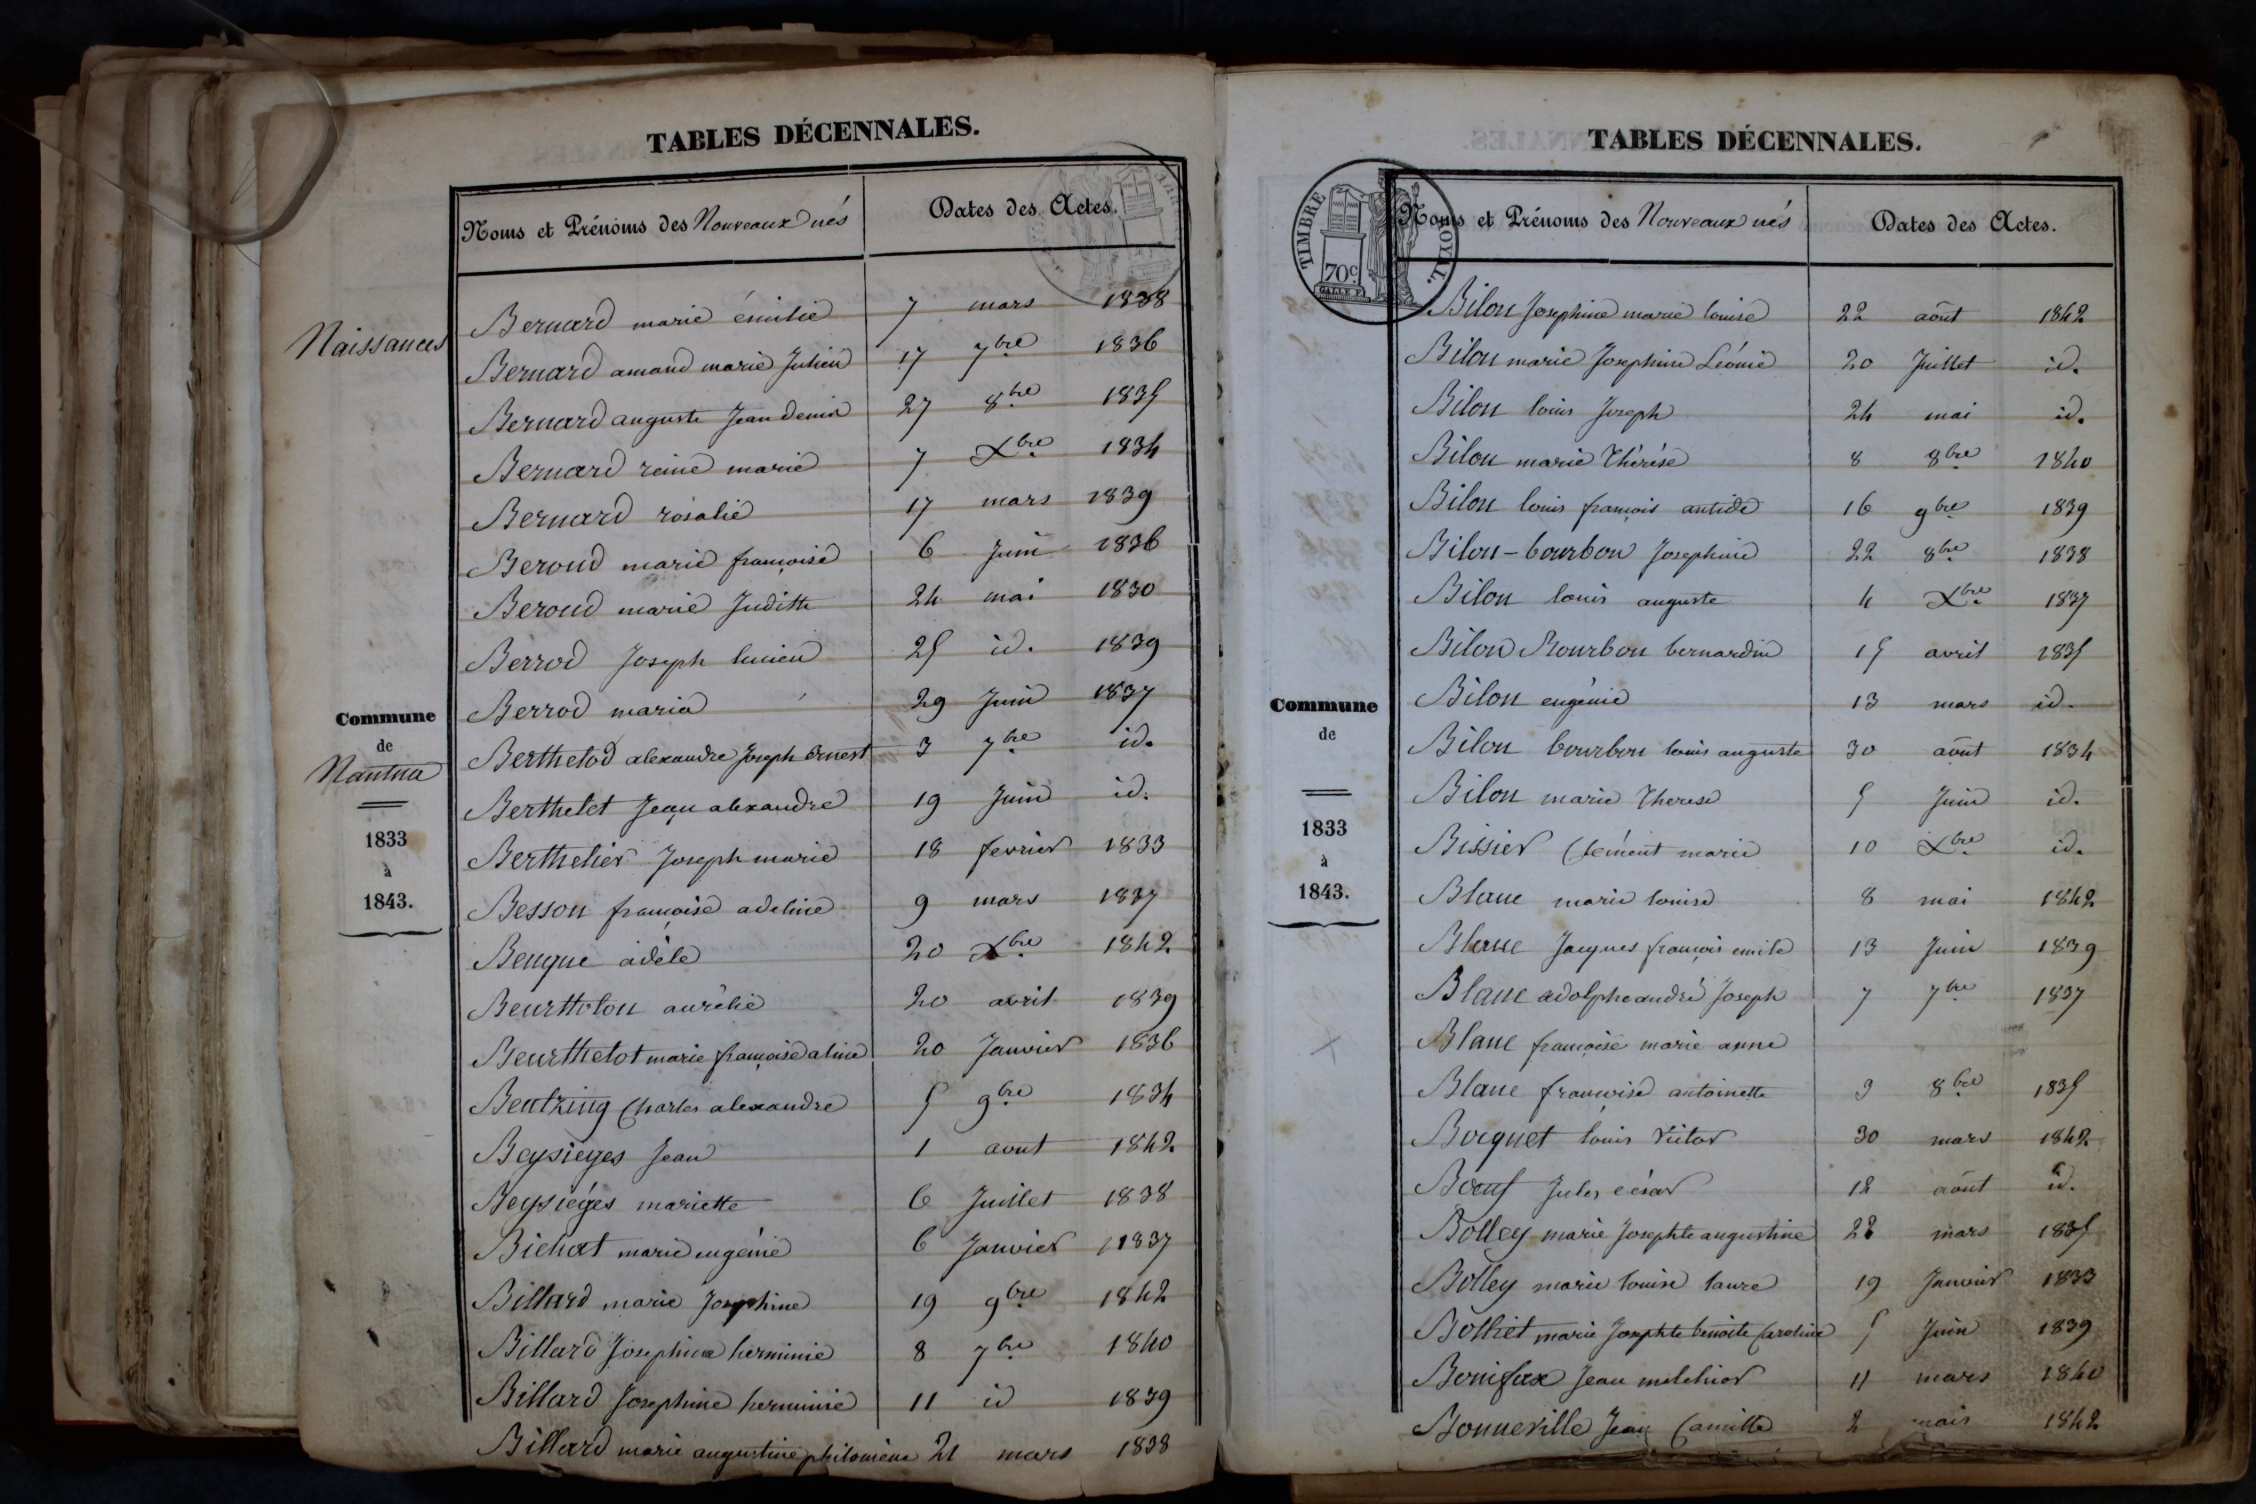 TABLES DÉCENNALES.
Noms et Prénoms des Nouveaux nés Dates des Actes.
Naissances
Bernard marie émilie 7 mars 1838
Bernard amand marie Julien 17 7bre 1836
Bernard auguste Jean denis 27 8bre 1835
Bernard reine marie 7 Xbre 1834
Bernard rosalie 17 mars 1839
Beroud marie françoise 6 Juin 1836
Beroud marie Judith 24 mai 1830
Berrod Joseph lucien 25 id. 1839
Berrod maria 29 Juin 1837
Berthelod alexandre Joseph Ernest 3 7bre id.
Berthelet Jean alexandre 19 Juin id.
Berthelier Joseph marie 18 fevrier 1833
Besson françoise adeline 9 mars 1837
Beuque adèle 20 Xbre 1842
Beurtholon aurélie 20 avril 1839
Beurthelot marie françoise aline 20 Janvier 1836
Beutzing Charles alexandre 5 9bre 1834
Beysieges Jean 1 aout 1842
Beysiéges mariette 6 Juillet 1838
Bichat marie eugénie 6 Janvier 1837
Billard marie Josephine 19 9bre 1842
Billard Josephine herminie 8 7bre 1840
Billard Josephine herminie 11 id 1839
Billard marie augustine philomène 21 mars 1838
Commune
de
Nantua
1833
à
1843.
TABLES DÉCENNALES.
TIMBRE ROYAL.
70c
Noms et Prénoms des Nouveaux nés Dates des Actes.
Bilon Josephine marie louise 22 août 1842
Bilon marie Josephine Léonie 20 Juillet id.
Bilon louis Joseph 24 mai id.
Bilon marie Thérèse 8 8bre 1840
Bilon louis françois antide 16 9bre 1839
Bilon-bourbon Josephine 22 8bre 1838
Bilon louis auguste 4 Xbre 1837
Bilon Bourbon bernardin 15 avril 1835
Bilon eugénie 13 mars id.
Bilon bourbon louis auguste 30 août 1834
Bilon marie Therese 5 Juin id.
Bissier Clément marie 10 Xbre id.
Blanc marie louise 8 mai 1842
Blanc Jacques françois emile 13 Juin 1839
Blanc adolphe andré Joseph 7 7bre 1837
Blanc françoise marie anne
Blanc françoise antoinette 3 8bre 1835
Bocquet louis Victor 30 mars 1842
Bœuf Jules césar 12 août id.
Bolley marie Josephte augustine 22 mars 1835
Bolley marie louise laure 19 Janvier 1833
Bolliet marie Josephte benoite Caroline 5 Juin 1839
Bonifax Jean melchior 11 mars 1840
Bonneville Jean Camille 2 mars 1842
Commune
de
1833
à
1843.